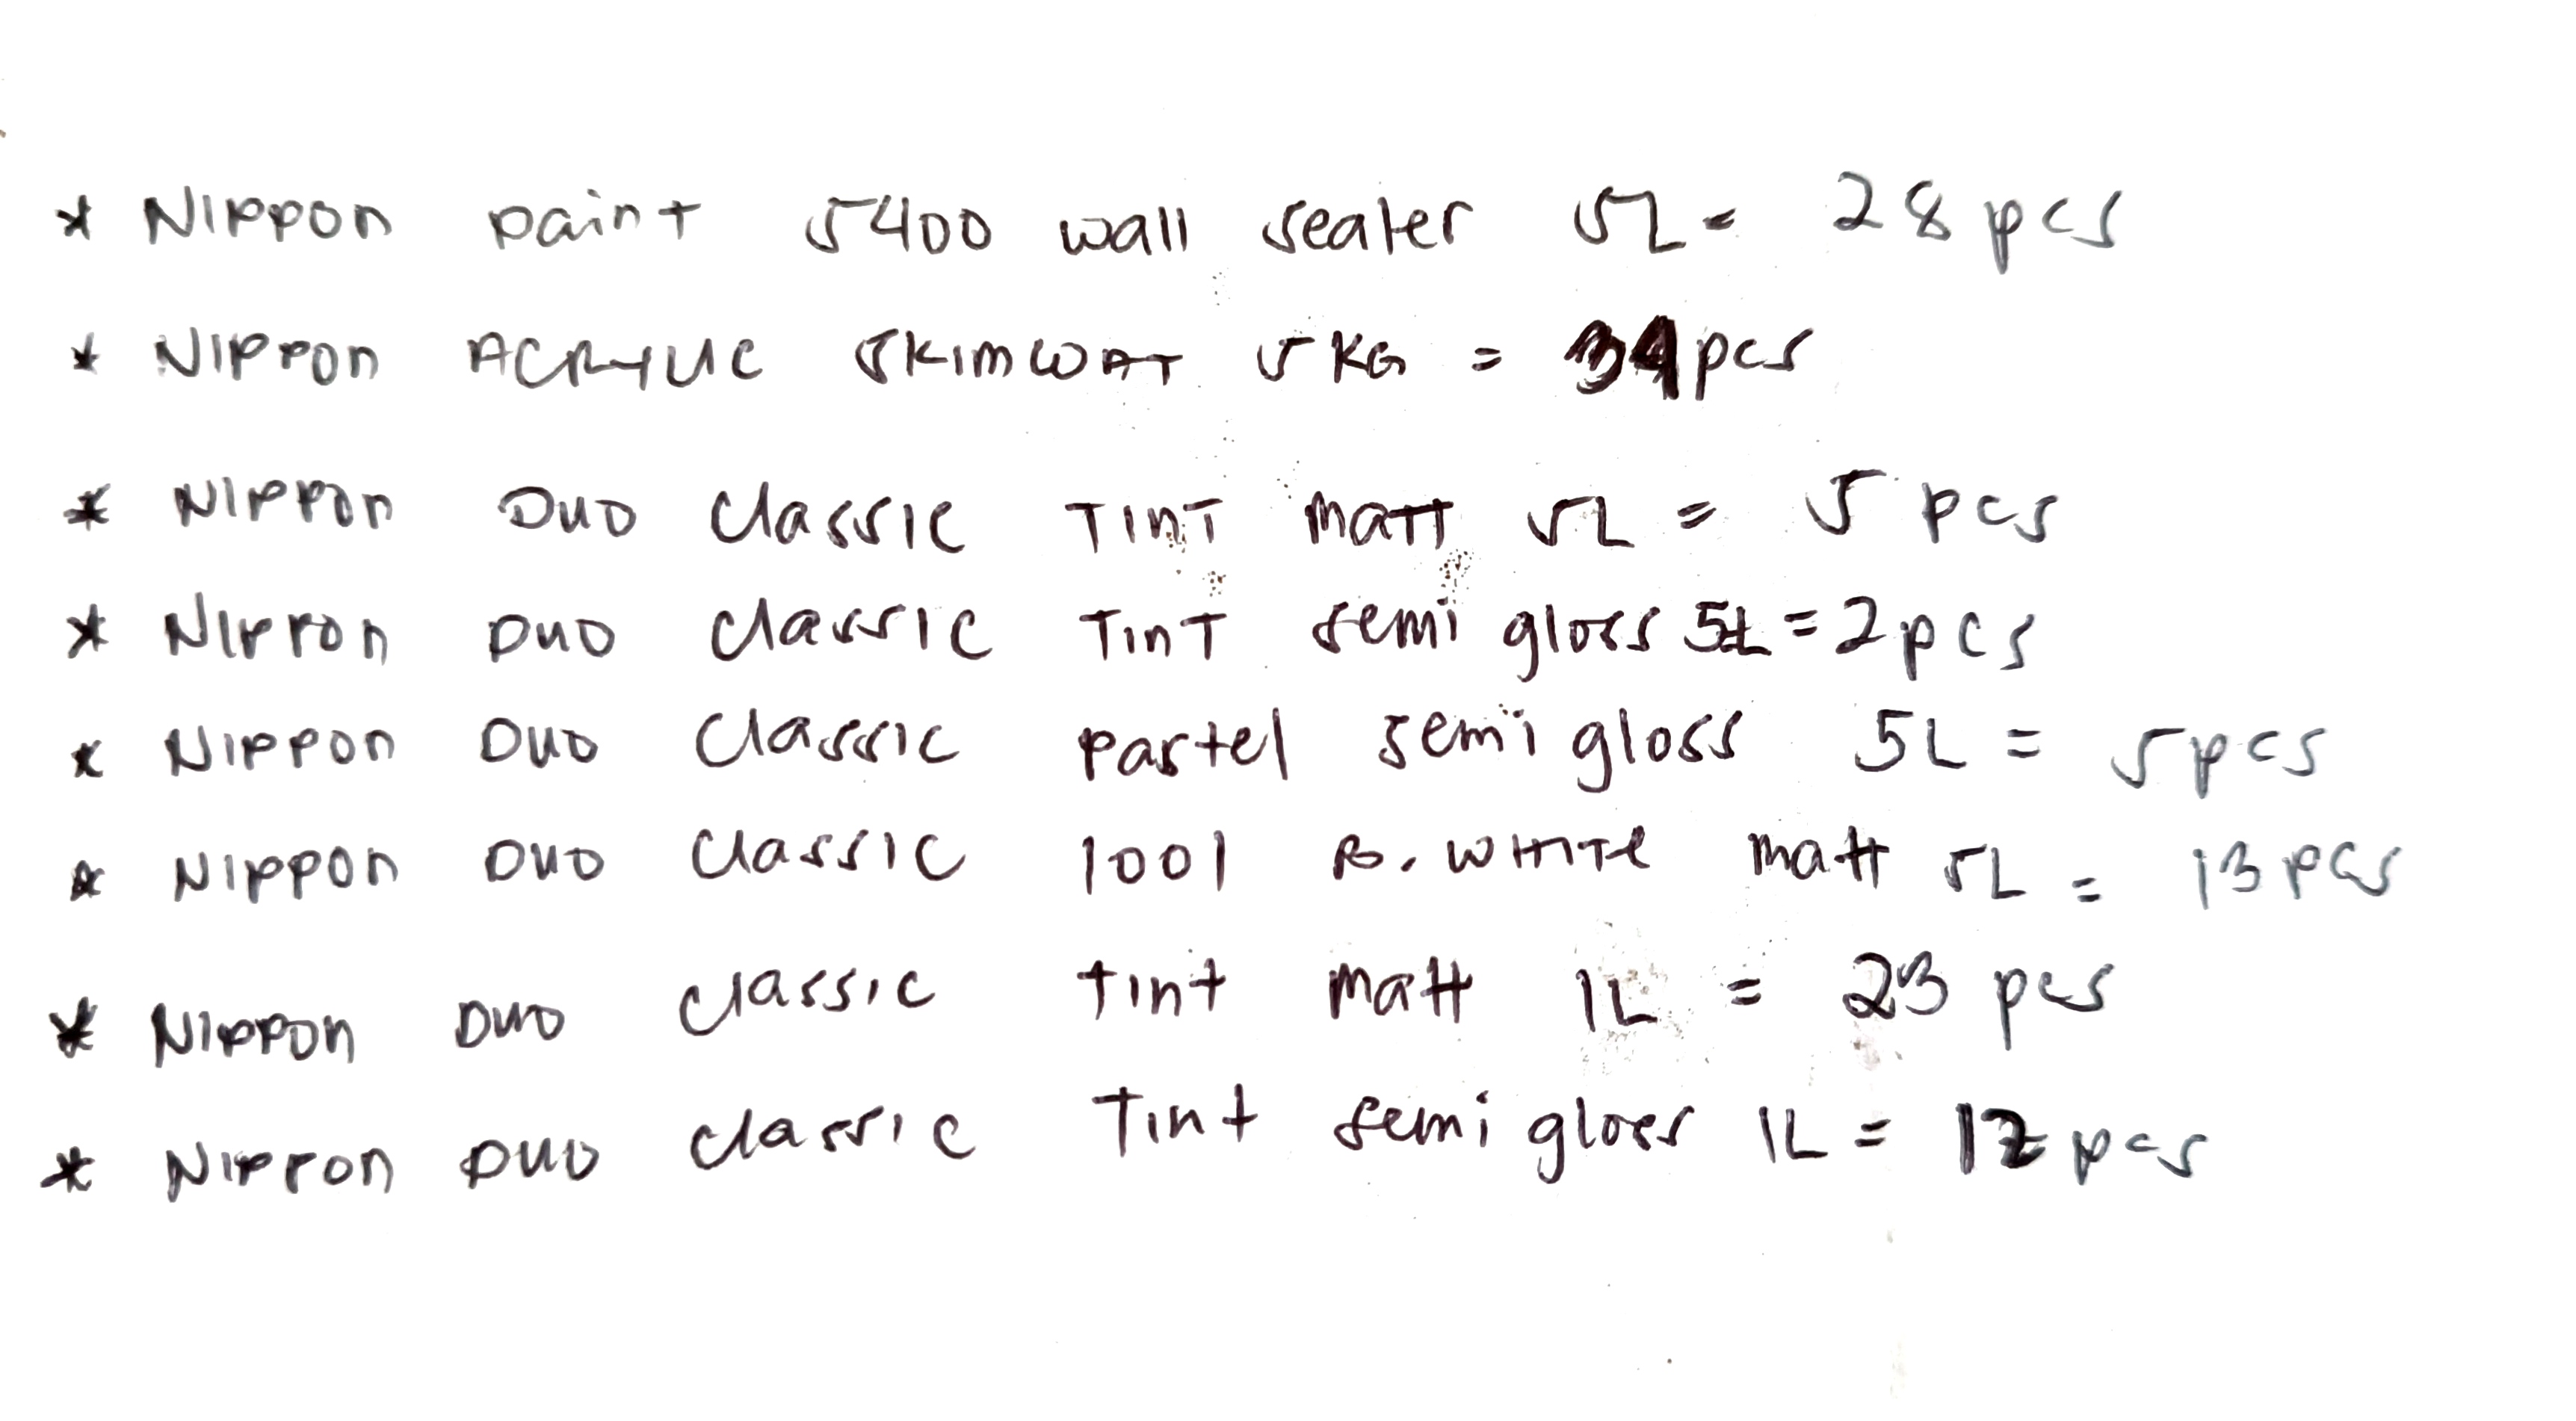 * NIPPON paint 5400 wall sealer 5L = 28 pcs
* NIPPON ACRYLIC SKIMCOAT 5KG = 34 pcs
* NIPPON DUO Classic TINT matt 5L = 5 pcs
* NIPPON DUO Classic TINT semi gloss 5L = 2 pcs
* NIPPON DUO Classic pastel semi gloss 5L = 5 pcs
* NIPPON DUO Classic 1001 B. WHITE matt 5L = 13 pcs
* NIPPON DUO classic tint matt 1L = 23 pcs
* NIPPON DUO classic Tint semi gloss 1L = 12 pcs